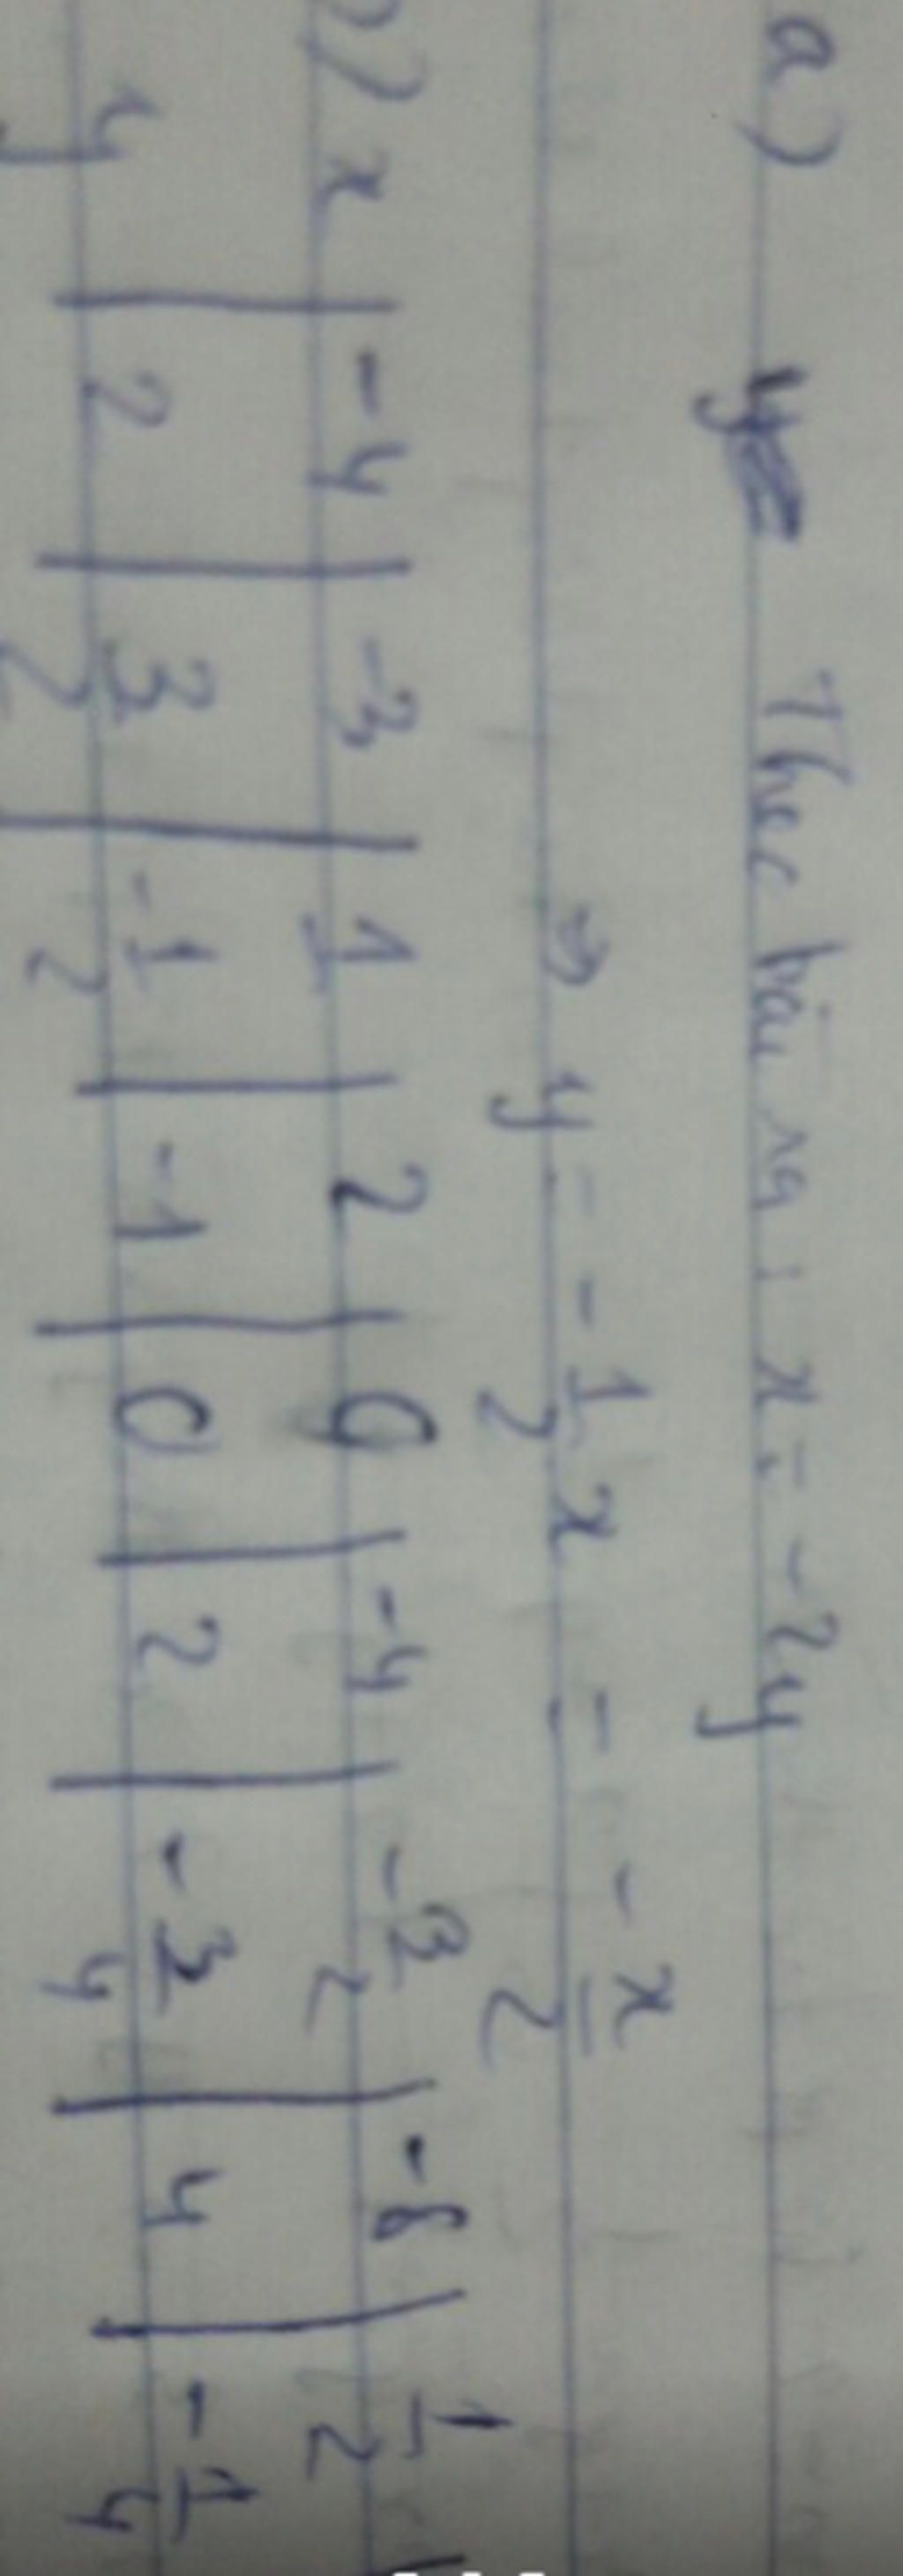 a) y= Theo bài ra: x = -2y
⇒ y = -1/2 x = -x/2
b) x | -4 | -3 | 1 | 2 | 0 | -4 | -3/2 | -8 | 1/2
y | 2 | 3/2 | -1/2 | -1 | 0 | 2 | -3/4 | 4 | -1/4